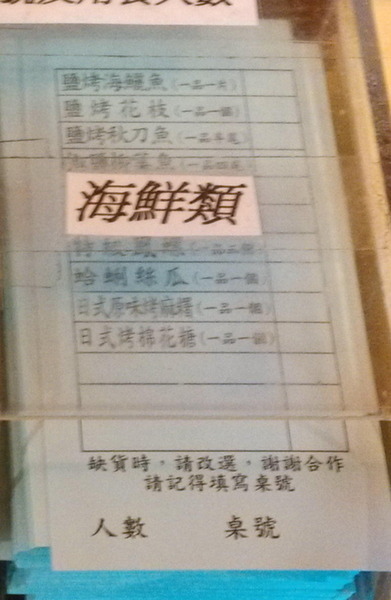 鹽烤海鱺魚(一品一片)
鹽烤花枝(一品一個)
鹽烤秋刀魚(一品半尾)
海鮮類
蛤蜊絲瓜(一品一個)
日式原味烤麻糬(一品一個)
日式烤棉花糖(一品一個)
缺貨時，請改選，謝謝合作
請記得填寫桌號
人數 桌號